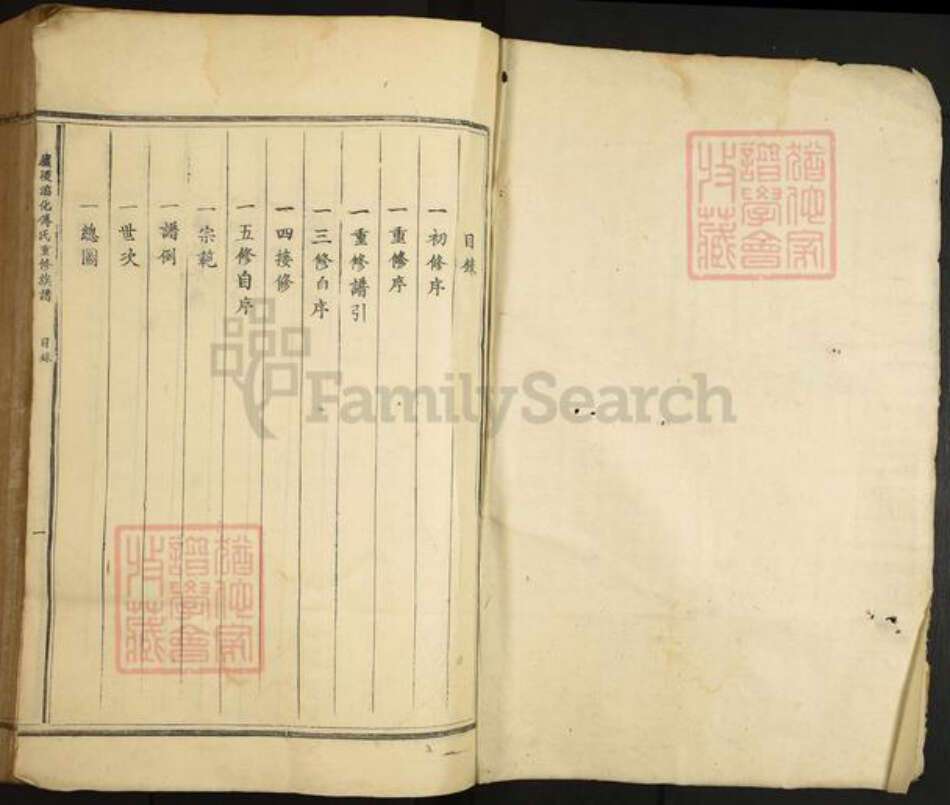 目錄
一初修序
一重修序
一重修譜引
一三修自序
一四接修
一五修自序
一宗範
一譜例
一世次
一總圖
化傅氏重修族譜
目錄
一
猶他家譜學會收藏
猶他家譜學會收藏
FamilySearch